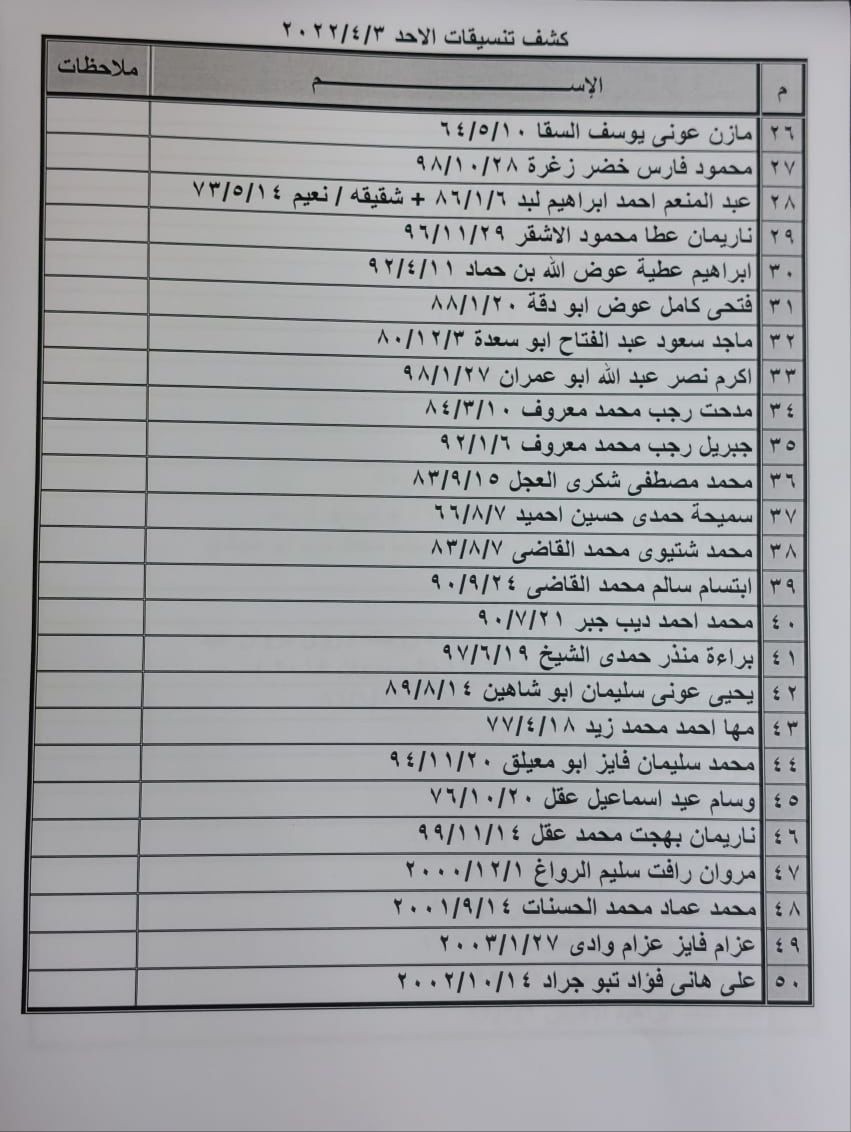 كشف تنسيقات الاحد ٢٠٢٢/٤/٣
م الإســـــــــــم ملاحظات
٢٦ مازن عونى يوسف السقا ٦٤/٥/١٠
٢٧ محمود فارس خضر زغرة ٩٨/١٠/٢٨
٢٨ عبد المنعم احمد ابراهيم لبد ٨٦/١/٦ + شقيقه / نعيم ٧٣/٥/١٤
٢٩ ناريمان عطا محمود الاشقر ٩٦/١١/٢٩
٣٠ ابراهيم عطية عوض الله بن حماد ٩٢/٤/١١
٣١ فتحى كامل عوض ابو دقة ٨٨/١/٢٠
٣٢ ماجد سعود عبد الفتاح ابو سعدة ٨٠/١٢/٣
٣٣ اكرم نصر عبد الله ابو عمران ٩٨/١/٢٧
٣٤ مدحت رجب محمد معروف ٨٤/٣/١٠
٣٥ جبريل رجب محمد معروف ٩٢/١/٦
٣٦ محمد مصطفى شكرى العجل ٨٣/٩/١٥
٣٧ سميحة حمدى حسين احميد ٦٦/٨/٧
٣٨ محمد شتيوى محمد القاضى ٨٣/٨/٧
٣٩ ابتسام سالم محمد القاضى ٩٠/٩/٢٤
٤٠ محمد احمد ديب جبر ٩٠/٧/٢١
٤١ براءة منذر حمدى الشيخ ٩٧/٦/١٩
٤٢ يحيى عونى سليمان ابو شاهين ٨٩/٨/١٤
٤٣ مها احمد محمد زيد ٧٧/٤/١٨
٤٤ محمد سليمان فايز ابو معيلق ٩٤/١١/٢٠
٤٥ وسام عيد اسماعيل عقل ٧٦/١٠/٢٠
٤٦ ناريمان بهجت محمد عقل ٩٩/١١/١٤
٤٧ مروان رافت سليم الرواغ ٢٠٠٠/١٢/١
٤٨ محمد عماد محمد الحسنات ٢٠٠١/٩/١٤
٤٩ عزام فايز عزام وادى ٢٠٠٣/١/٢٧
٥٠ على هانى فؤاد تبو جراد ٢٠٠٢/١٠/١٤